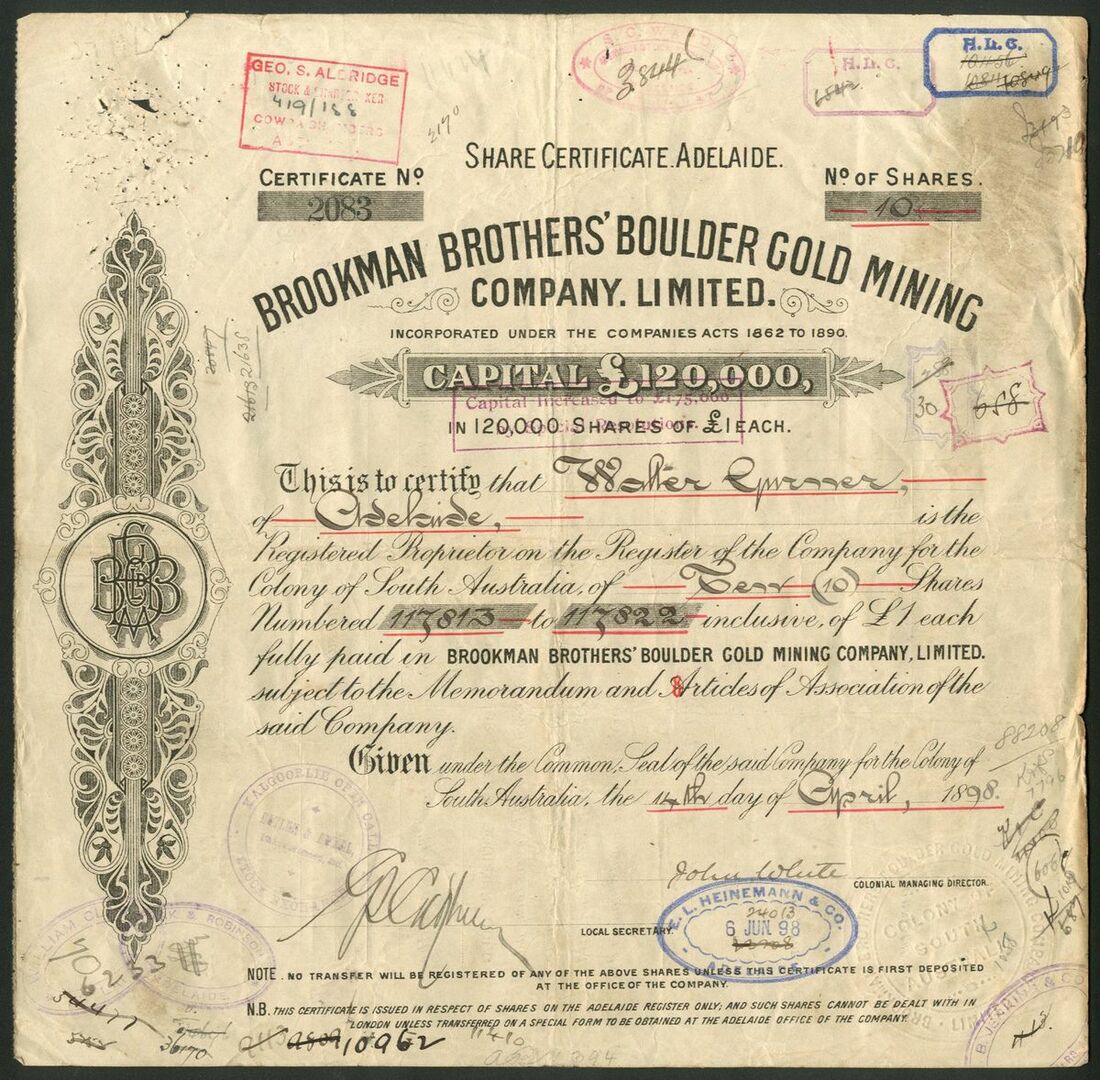 GEO. S. ALDRIDGE
STOCK &
419/188
3844
H.L.C.
6842
H.L.C.
10456
2190
SHARE CERTIFICATE. ADELAIDE.
CERTIFICATE No
2083
No OF SHARES.
10
BROOKMAN BROTHERS' BOULDER GOLD MINING
COMPANY. LIMITED.
INCORPORATED UNDER THE COMPANIES ACTS 1862 TO 1890.
CAPITAL £120,000,
Capital Increased to £175,000
IN 120,000 SHARES OF £1 EACH.
30
688
This is to certify that Walter Gurner,
of Adelaide, is the
Registered Proprietor on the Register of the Company for the
Colony of South Australia, of Ten (10) Shares
Numbered 117,813 to 117,822 inclusive, of £1 each
fully paid in BROOKMAN BROTHERS' BOULDER GOLD MINING COMPANY, LIMITED.
subject to the Memorandum and Articles of Association of the
said Company.
Given under the Common, Seal of the said Company for the Colony of
South Australia, the 14th day of April, 1898.
88208
KALGOORLIE OPEN CALL
John White
COLONIAL MANAGING DIRECTOR.
LOCAL SECRETARY
E. L. HEINEMANN & CO.
24013
6 JUN 98
& ROBINSON
NOTE. NO TRANSFER WILL BE REGISTERED OF ANY OF THE ABOVE SHARES UNLESS THIS CERTIFICATE IS FIRST DEPOSITED
AT THE OFFICE OF THE COMPANY.
N.B. THIS CERTIFICATE IS ISSUED IN RESPECT OF SHARES ON THE ADELAIDE REGISTER ONLY; AND SUCH SHARES CANNOT BE DEALT WITH IN
LONDON UNLESS TRANSFERRED ON A SPECIAL FORM TO BE OBTAINED AT THE ADELAIDE OFFICE OF THE COMPANY.
36170
10962
11410